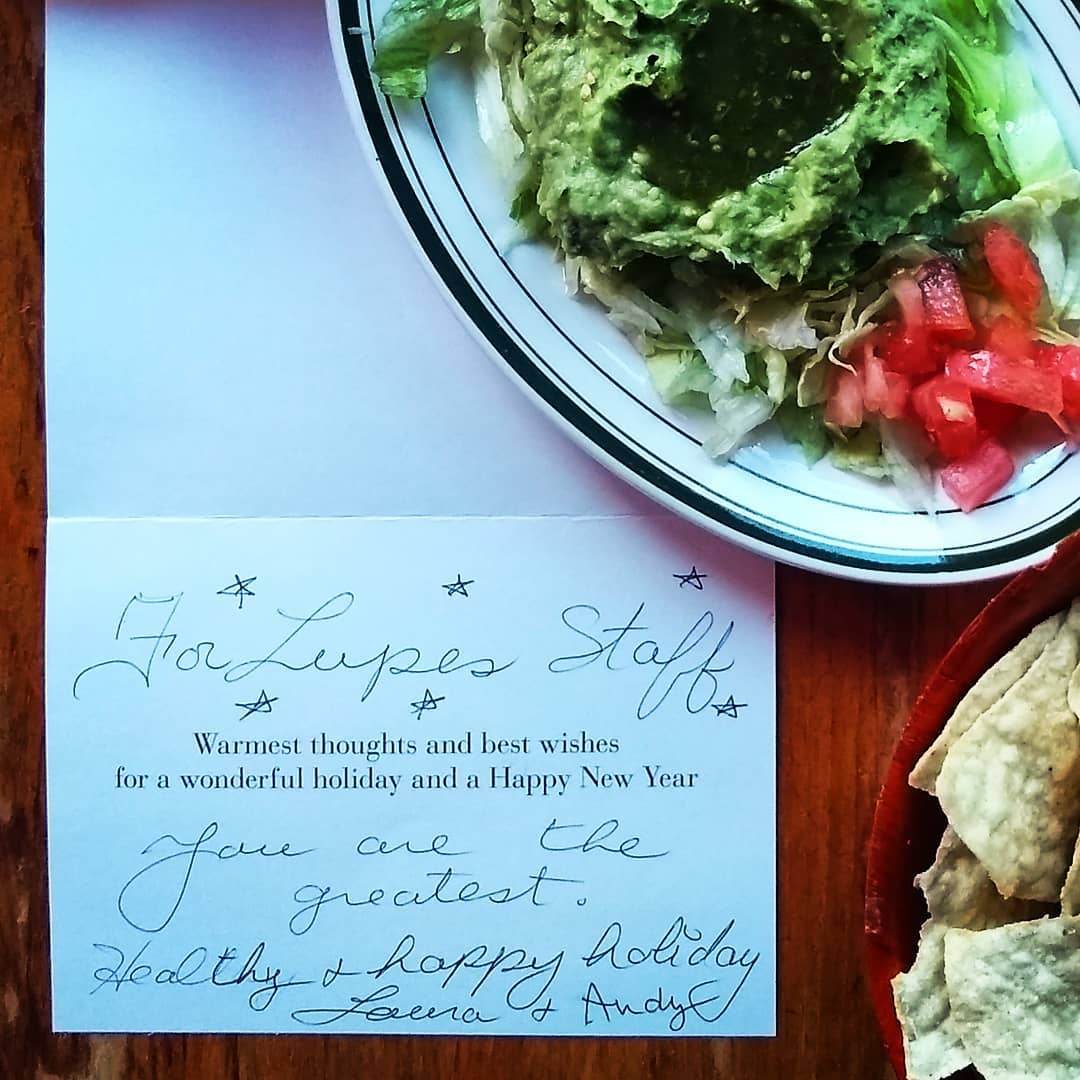 For Lupes Staff
Warmest thoughts and best wishes
for a wonderful holiday and a Happy New Year
You are the
greatest.
Healthy + happy holiday
Laura + Andy